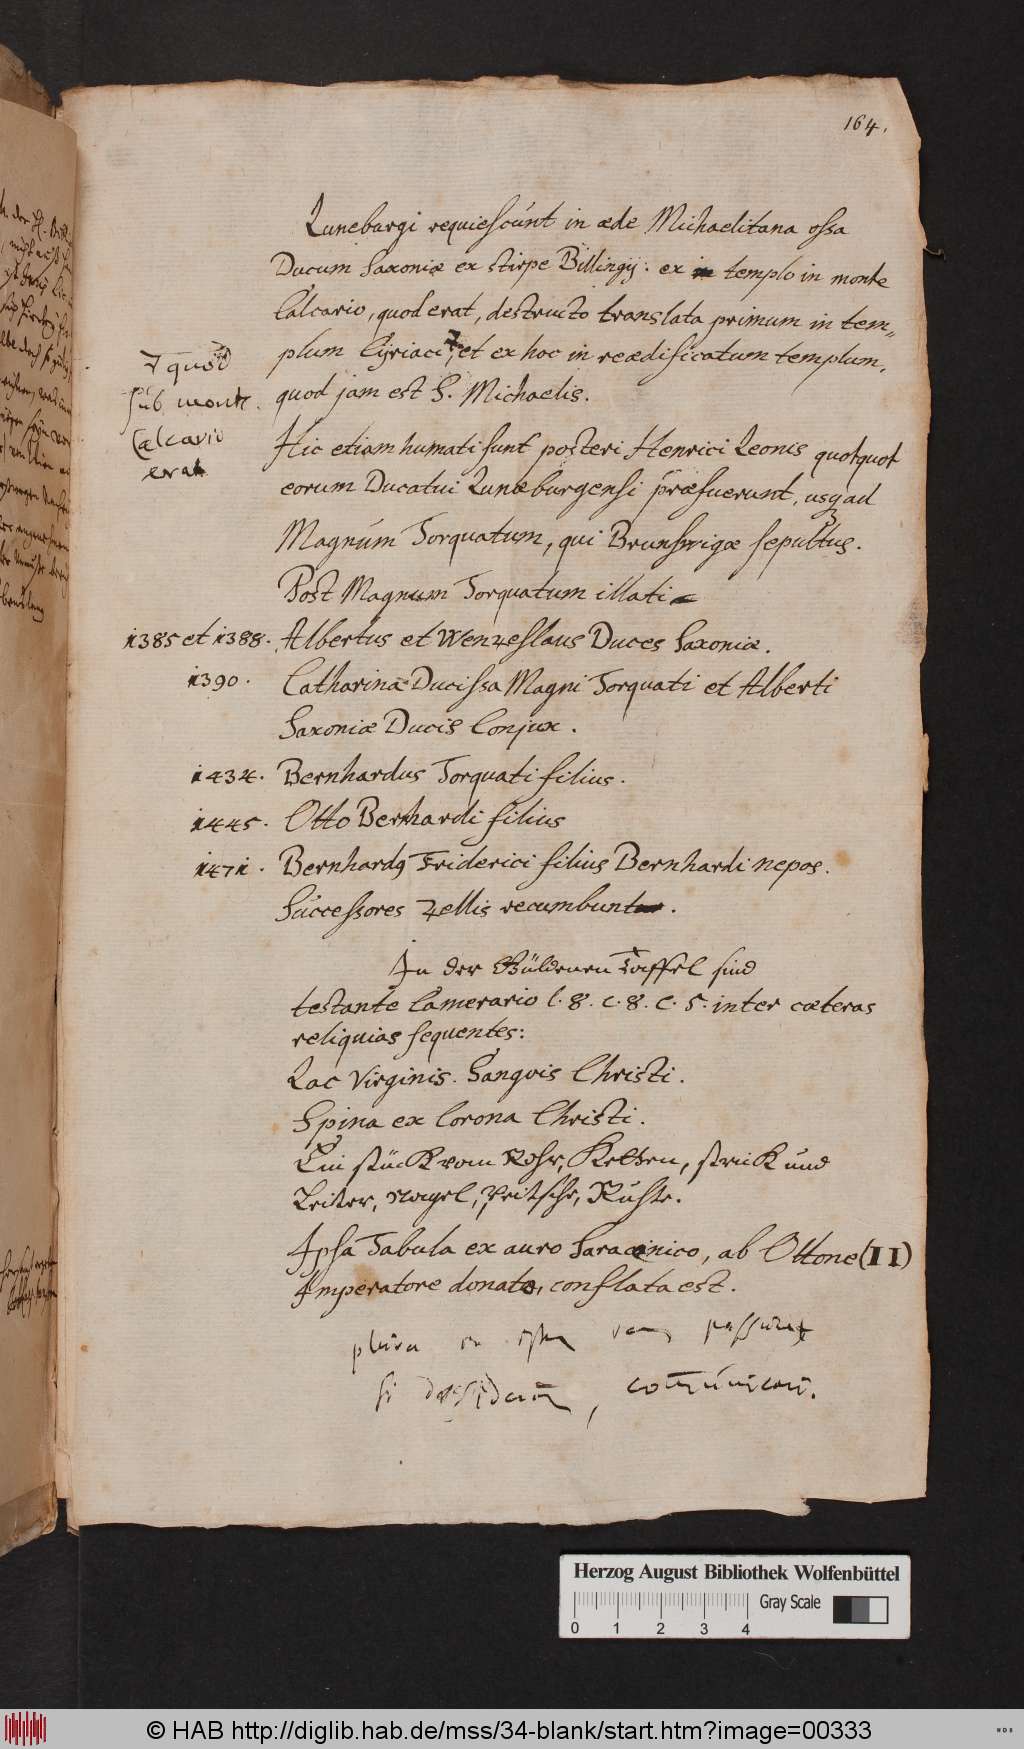 164.
Luneburgi requiescunt in æde Michaelitana ossa
Ducum Saxoniæ ex stirpe Billingij. ex templo in monte
Calcario, quod erat, destructo translata primum in tem-
plum Cyriaci, et ex hoc in reædificatum templum,
quod jam est S. Michaelis.
quod
sub monte
Calcario
erat
Hic etiam humati sunt posteri Henrici Leonis quotquot
eorum Ducatui Lunæburgensi præfuerunt, usq ad
Magnum Torquatum, qui Brunswigæ sepultus.
Post Magnum Torquatum illati
1385 et 1388. Albertus et Wenzeslaus Duces Saxoniæ.
1390. Catharina Ducissa Magni Torquati et Alberti
Saxoniæ Ducis Conjux.
1434. Bernhardus Torquati filius.
1445. Otto Bernhardi filius
1471. Bernhardq Friderici filius Bernhardi nepos.
Successores Zellis recumbunt.
In der Güldenen Taffel sind
testante Camerario l. 8. c. 8. C. 5. inter cæteras
reliquias sequentes:
Lac Virginis. Sangvis Christi.
Spina ex Corona Christi.
Ein stück vom Rohr, Ketten, strick und
Leiter, Nagel, Peitsche, Ruhte.
Ipsa Tabula ex auro Saracenico, ab Ottone (II)
Imperatore donato, conflata est.
plura
si communicari.
Herzog August Bibliothek Wolfenbüttel
0 1 2 3 4
Gray Scale
© HAB http://diglib.hab.de/mss/34-blank/start.htm?image=00333